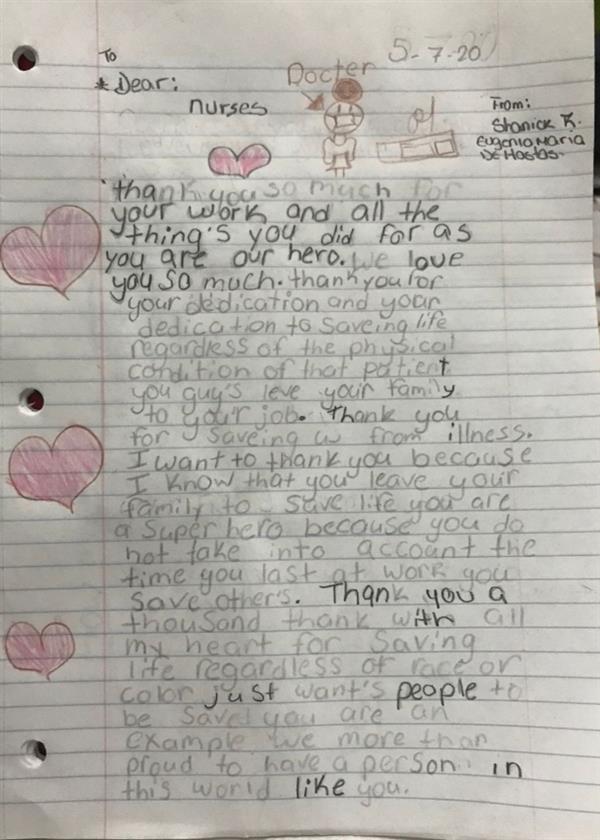 To
5-7-20
* Dear:
Docter
nurses
From:
Shanick R.
Eugenio Maria
De Hostos.
thank you so much for
your work and all the
thing's you did for as
you are our hero. We love
you so much. thank you for
your dedication and your
dedication to saveing life
regardless of the physical
condition of that patient
you guy's leve your family
to your job. Thank you
for saveing us from illness.
I want to thank you because
I know that you leave your
family to save life you are
a super hero because you do
not take into account the
time you last at work you
save other's. Thank you a
thousand thank with all
my heart for saving
life regardless of race or
color just want's people to
be save! you are an
example we more than
proud to have a person in
this world like you.